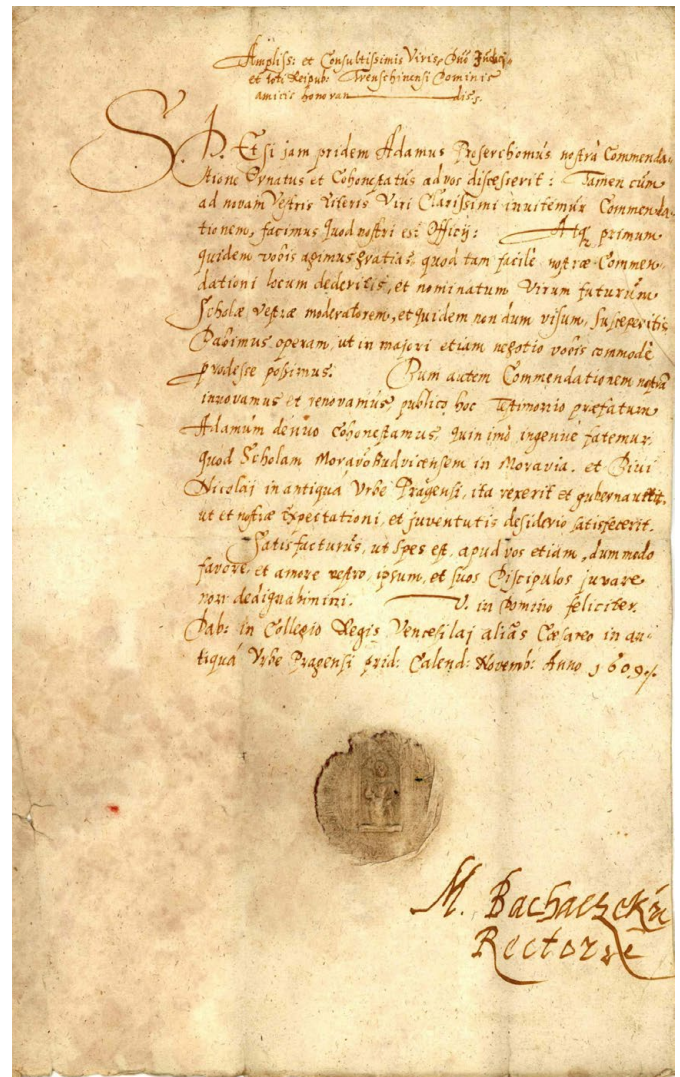 Ampliss: et Consultissimis Viris, Dnō Judici,
et toti Reipub: Trenschinensi Dominis
amicis honoran dis s.
S. P. Etsi jam pridem Adamus Preserchomus nostrâ Commenda-
tione Ornatus et Cohonestatus ad vos discesserit: Tamen cùm
ad novam Vestris literis Viri Clarissimi invitemur Commenda-
tionem, facimus quod nostri est Officij: Atq; primum
quidem vobis agimus gratias, quod tam facilè nostræ Commen-
dationi locum dederitis, et nominatum Virum futurum
Scholæ vestræ moderatorem, et quidem non dum visum, susceperitis
Dabimus operam, ut in majori etiam negotio vobis commodè
prodesse possimus: Dum autem Commendationem nostrā
innovamus et renovamus, publico hoc Testimonio præfatum
Adamum denuo cohonestamus, quin imò ingenuè fatemur,
quod Scholam MoravoBudvicensem in Moravia, et Divi
Nicolaj in antiquâ Urbe Pragensi, ita rexerit et gubernavĕrit,
ut et nostræ Expectationi, et juventutis desiderio satisfecerit.
Satisfacturus, ut spes est, apud vos etiam, dummodo
favore, et amore vestro, ipsum, et suos Discipulos juvare
non dedignabimini. V. in Domino feliciter.
Dab: in Collegio Regis Venceslaj aliàs Cæsareo in an-
tiquâ Urbe Pragensi prid: Calend: Novemb: Anno 1609
M. Bachaczek
Rector